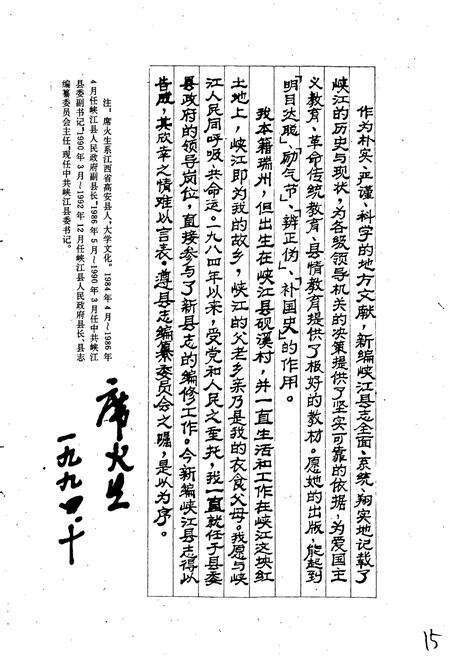 作为朴实、严谨、科学的地方文献，新编峡江县志全面、系统、翔实地记载了
峡江的历史与现状，为各级领导机关的决策提供了坚实可靠的依据，为爱国主
义教育、革命传统教育、县情教育提供了极好的教材。愿她的出版，能起到
“明目达聪”、“励气节”、“辨正伪”、“补国史”的作用。
我本籍瑞州，但出生在峡江县砚溪村，并一直生活和工作在峡江这块红
土地上，峡江即为我的故乡，峡江的父老乡亲乃是我的衣食父母。我愿与峡
江人民同呼吸、共命运。一九八四年以来，受党和人民之重托，我一直就任于县委
县政府的领导岗位，直接参与了新县志的编修工作。今新编峡江县志得以
告成，其欣幸之情难以言表。遵县志编纂委员会之嘱，是以为序。
席火生
一九九四.十
注：席火生系江西省高安县人、大学文化。1984年4月～1986年
4月任峡江县人民政府副县长，1986年5月～1990年3月任中共峡江
县委副书记，1990年3月～1992年12月任峡江县人民政府县长、县志
编纂委员会主任，现任中共峡江县委书记。
15